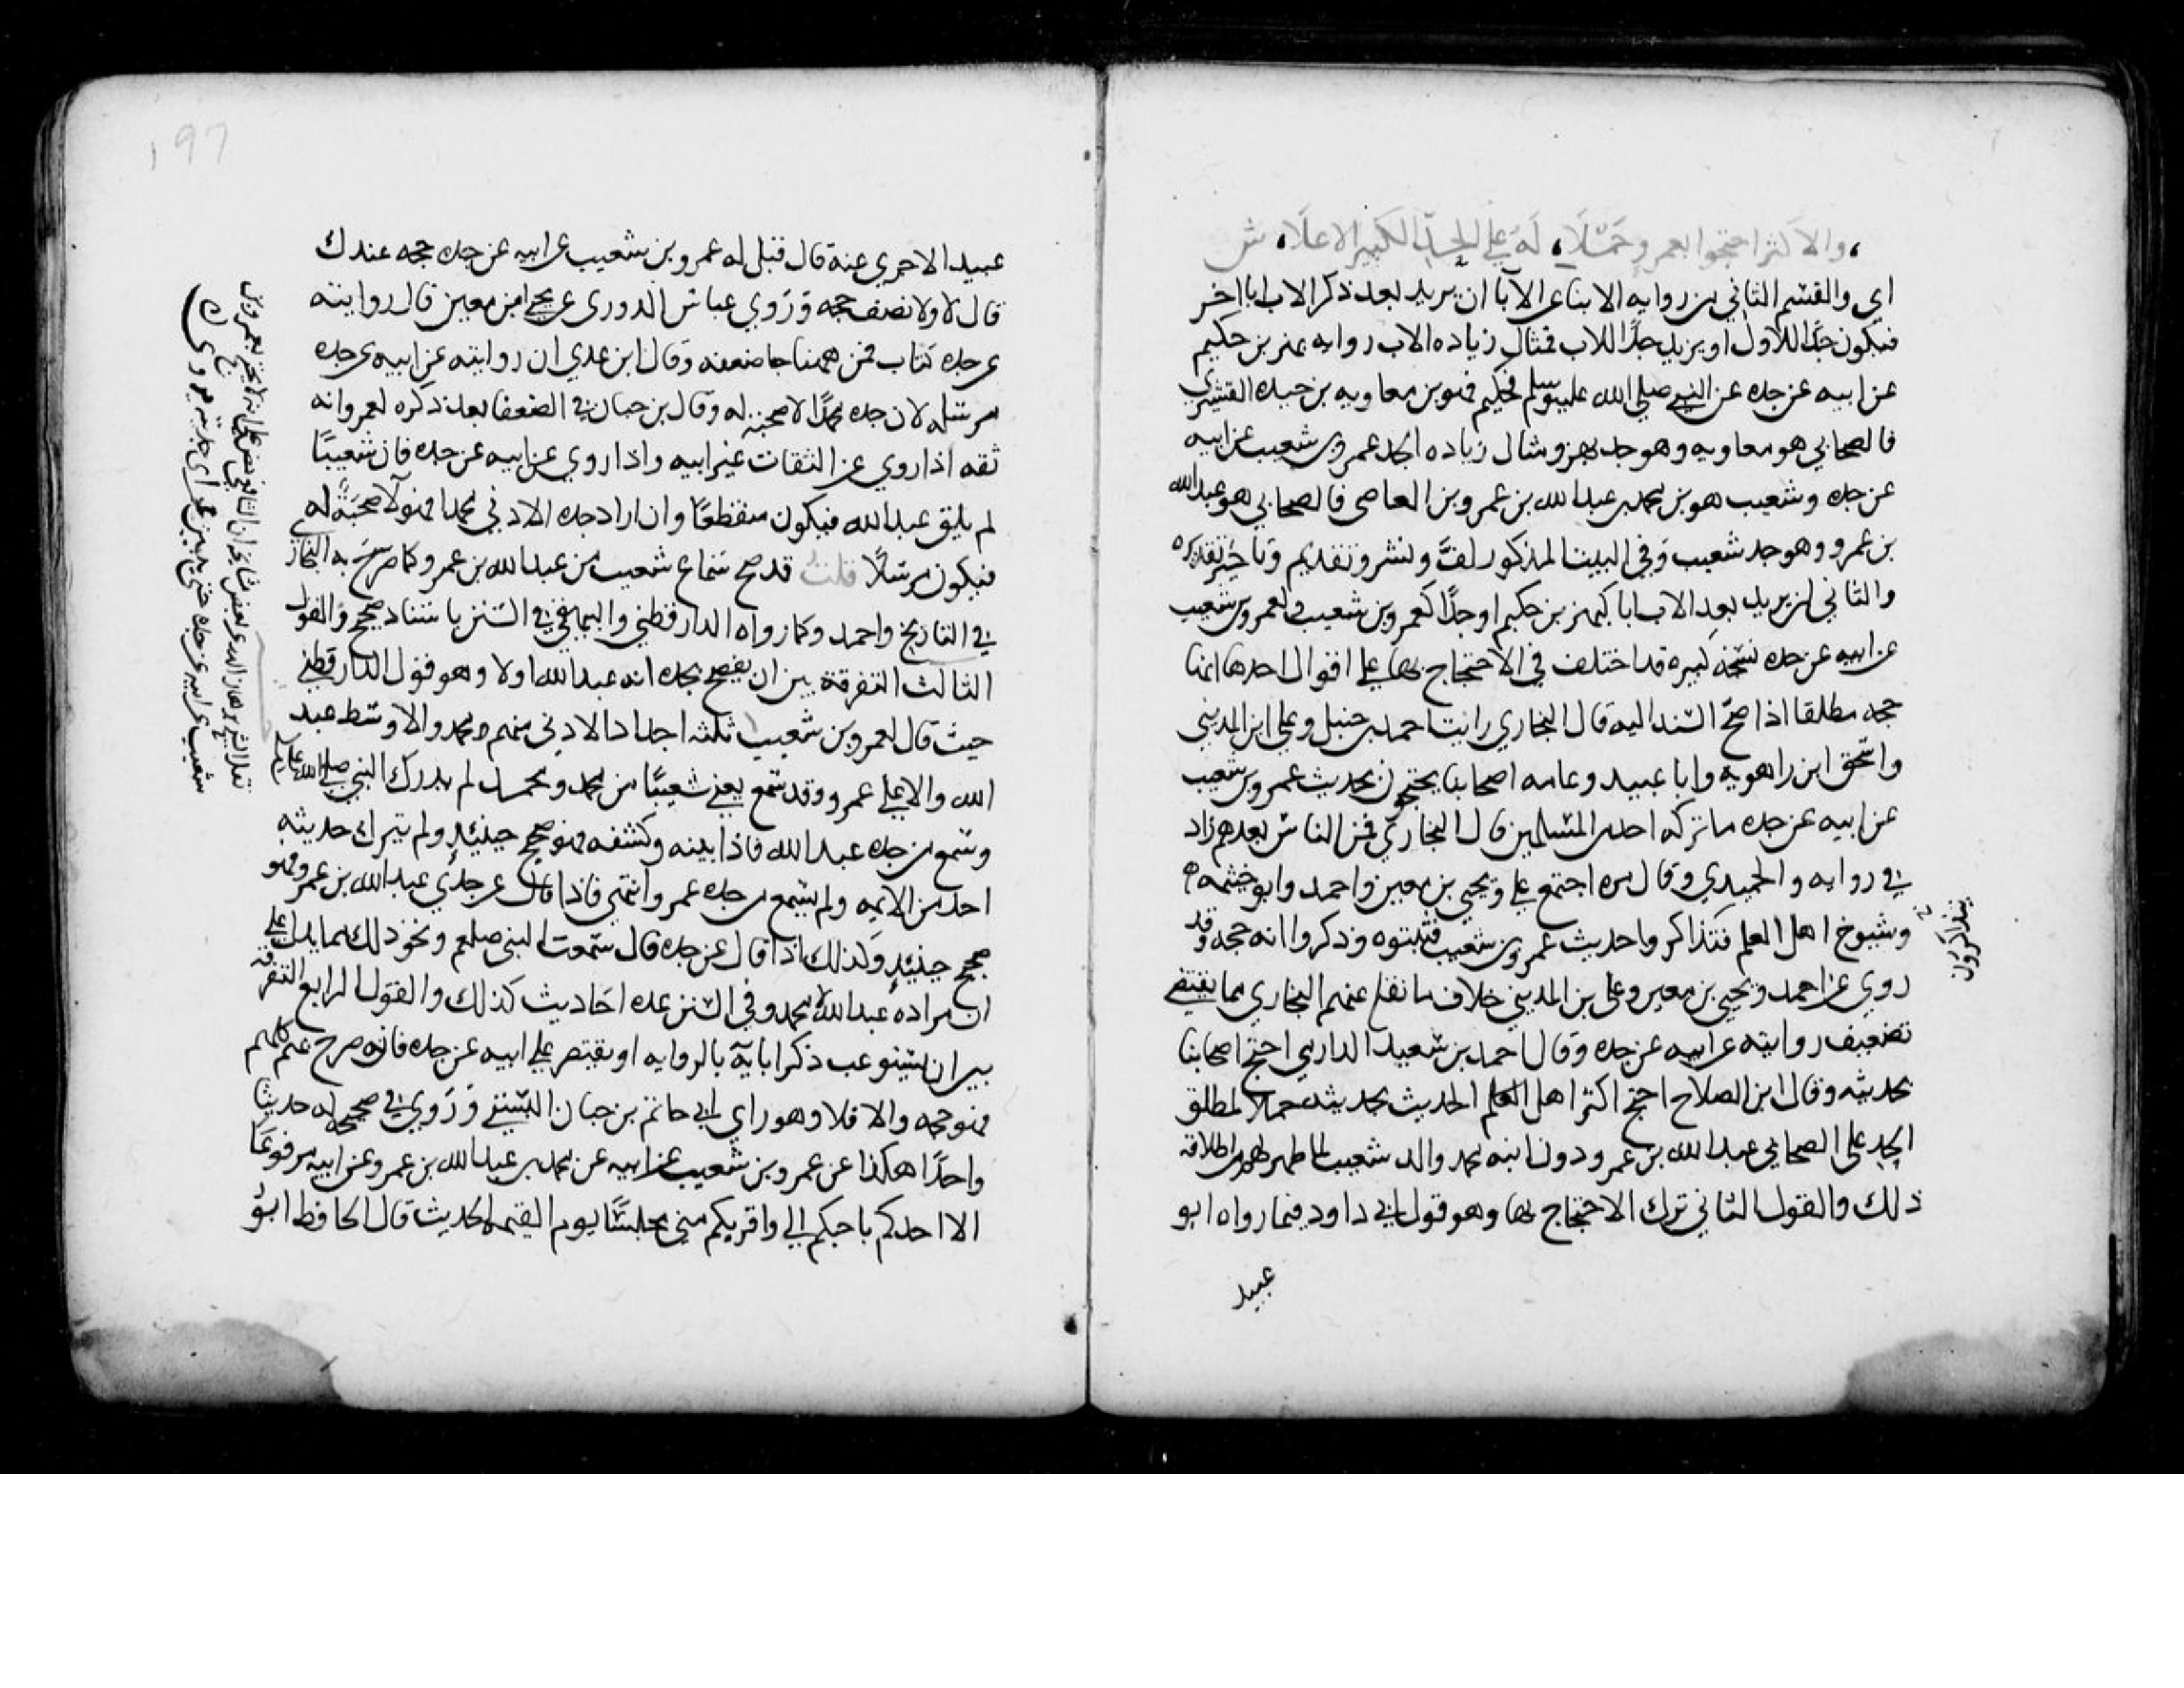 والاكثر احتجوا بعمرو حملا، له على الجد الكبير الاعلا، ش
اي والقسم الثاني من روايه الابنا عن الآبا ان يزيد بعد ذكر الاب ابا اخر
فيكون جدا للاول او يزيد جدا للاب فمثال زياده الاب روايه بهز بن حكيم
عن ابيه عن جده عن النبي صلى الله عليه وسلم فحكيم فهو بن معاويه بن حيده القشيري
فالصحابي هو معاويه وهو جد بهز ومثال زياده الجد عمرو بن شعيب عن ابيه
عن جده وشعيب هو بن محمد بن عبدالله بن عمرو بن العاصي فالصحابي هو عبدالله
بن عمرو وهو جد شعيب وفي البيت المذكور لف ونشر وتقديم وتاخير تقديره
والثاني ان يزيد بعد الاب ابا كبهز بن حكيم او جدا كعمرو بن شعيب ولعمرو بن شعيب
عن ابيه عن جده نسخة كبيره قد اختلف في الاحتجاج بها على اقوال احدها انها
حجه مطلقا اذا صح السند اليه قال البخاري رايت احمد بن حنبل وعلي ابن المديني
واسحق ابن راهويه وابا عبيد وعامه اصحابنا يحتجون بحديث عمرو بن شعيب
عن ابيه عن جده ما تركه احد من المسلمين قال البخاري فمن الناس بعدهم زاد
في روايه والحميدي وقال مره اجتمع علي ويحيى بن معين واحمد وابو خيثمه
وشيوخ اهل العلم فتذاكروا حديث عمرو بن شعيب فثبتوه وذكروا انه حجه وقد
يتذاكرون
روي عن احمد ويحيى بن معين وعلي بن المديني خلاف ما نقل عنهم البخاري مما يقتضي
تضعيف روايته عن ابيه عن جده وقال احمد بن سعيد الدارمي احتج اصحابنا
بحديثه وقال ابن الصلاح احتج اكثر اهل العلم الحديث بحديثه حملا لمطلق
الجد على الصحابي عبدالله بن عمرو دون ابنه محمد والد شعيب لما ظهر لهم من اطلاقه
ذلك والقول الثاني ترك الاحتجاج بها وهو قول ابي داود فيما رواه ابو
عبيد
عبيد الاجري عنه قال قيل له عمرو بن شعيب عن ابيه عن جده حجه عندك
قال لا ولا نصف حجه وروي عباس الدوري عن يحيى ابن معين قال روايته
عن جده كتاب فمن ههنا جا ضعفه وقال ابن عدي ان روايته عن ابيه عن جده
مرسله لان جده محمدا لا صحبة له وقال بن حبان في الضعفا بعد ذكره لعمرو انه
ثقه اذا روي عن الثقات غير ابيه واذا روي عن ابيه عن جده فان شعيبا
لم يلق عبدالله فيكون منقطعا وان اراد جده الادنى محمدا فهو لا صحبة له
فيكون مرسلا قلت قد صح سماع شعيب من عبدالله بن عمرو كما صرح به البخاري
في التاريخ واحمد وكما رواه الدارقطني والبيهقي في السنن باسناد صحيح والقول
الثالث التفرقة بين ان يفصح بجده انه عبدالله اولا وهو قول الدارقطني
حيث قال لعمرو بن شعيب ثلثه اجداد الادنى منهم محمد والاوسط عبد
الله والاعلى عمرو وقد سمع يعني شعيبا من محمد ومحمد لم يدرك النبي صلى الله عليه
وسمع من جده عبدالله فاذا بينه وكشفه فهو صحيح حينئذ ولم يترك حديثه
احد من الايمه ولم يسمع من جده عمرو انتهى فاذا قال عن جدي عبدالله بن عمرو فهو
صحيح حينئذ وكذلك اذا قال عن جده قال سمعت النبي صلعم ونحو ذلك مما يدل على
ان مراده عبدالله لا محمد وفي السنن عده احاديث كذلك والقول الرابع التفرقة
بين ان يستوعب ذكر ابايه بالروايه او يقتصر على ابيه عن جده فان صرح بهم كلهم
فهو حجه والا فلا وهو راي ابي حاتم بن حبان البستي وروي في صحيحه له حديثا
واحدا هكذا عن عمرو بن شعيب عن ابيه عن محمد بن عبدالله بن عمرو عن ابيه مرفوعا
الا احدثكم باحبكم الي واقربكم مني مجلسا يوم القيمه الحديث قال الحافظ ابو